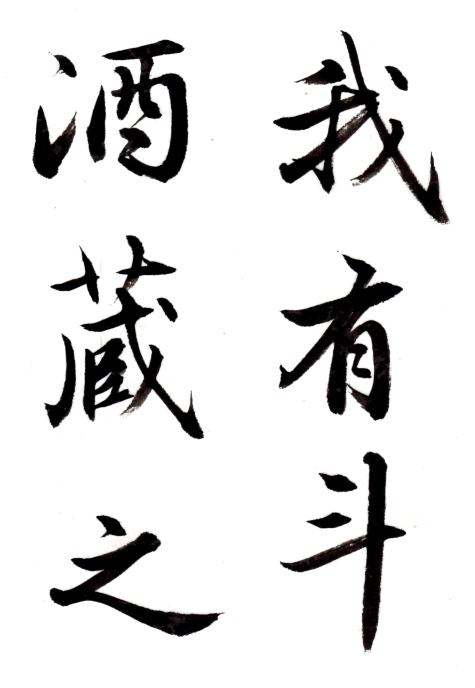 我有斗
酒藏之